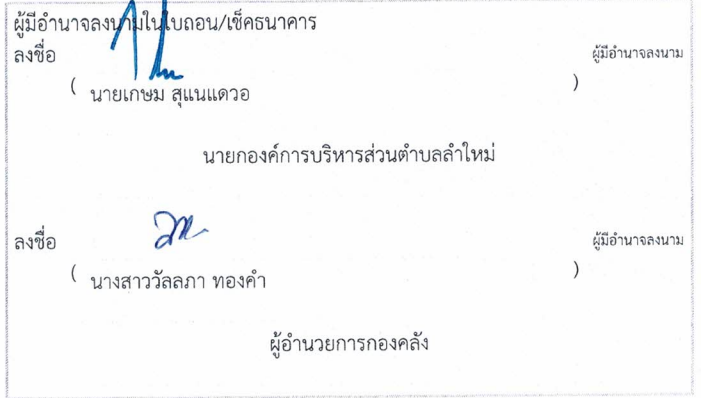 ผู้มีอำนาจลงนามในใบถอน/เช็คธนาคาร
ลงชื่อ ผู้มีอำนาจลงนาม
( นายเกษม สุแนแดวอ )
นายกองค์การบริหารส่วนตำบลลำใหม่
ลงชื่อ ผู้มีอำนาจลงนาม
( นางสาววัลลภา ทองคำ )
ผู้อำนวยการกองคลัง